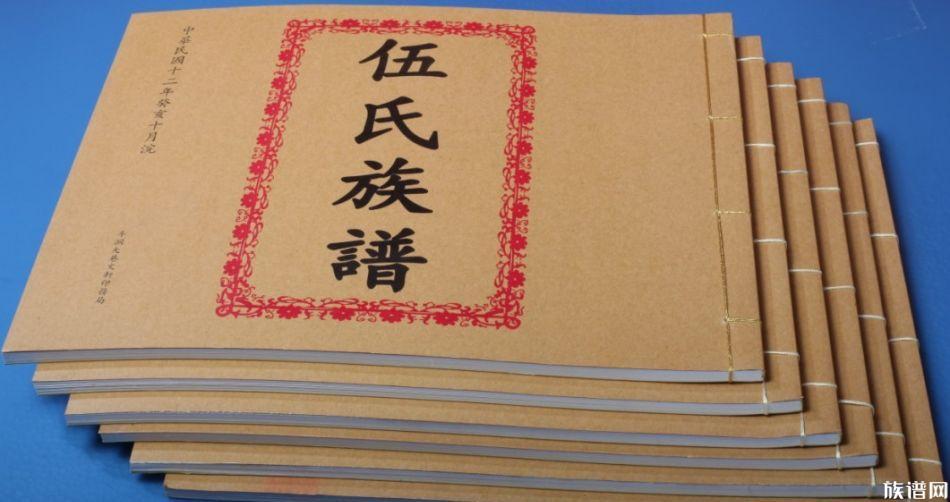 伍氏族譜
中華民國十二年癸亥十月浣
族谱网